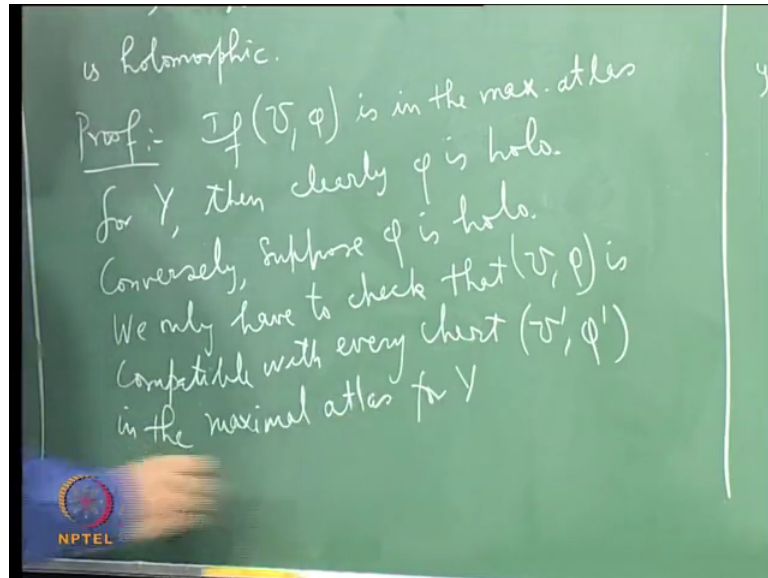 is holomorphic.
Proof:- If (V, φ) is in the max. atlas
for Y, then clearly φ is holo.
Conversely, suppose φ is holo.
We only have to check that (V, φ) is
compatible with every chart (V', φ')
in the maximal atlas for Y
y
NPTEL